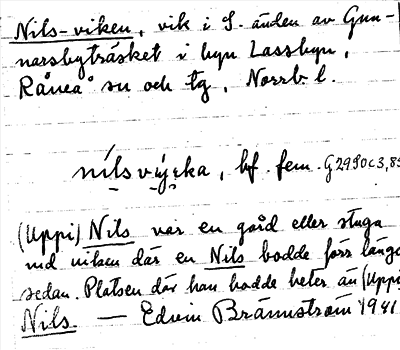 Nils-viken, vik i S. änden av Gun-
narsbyträsket i byn Lassbyn,
Råneå sn och tg, Norrb l.
nílsvýka, bf. fem. G2990c3,83
(Uppi) Nils var en gård eller stuga
vid viken där en Nils bodde förr länge
sedan. Platsen där han bodde heter än (Uppi)
Nils. — Edvin Brännström 1941